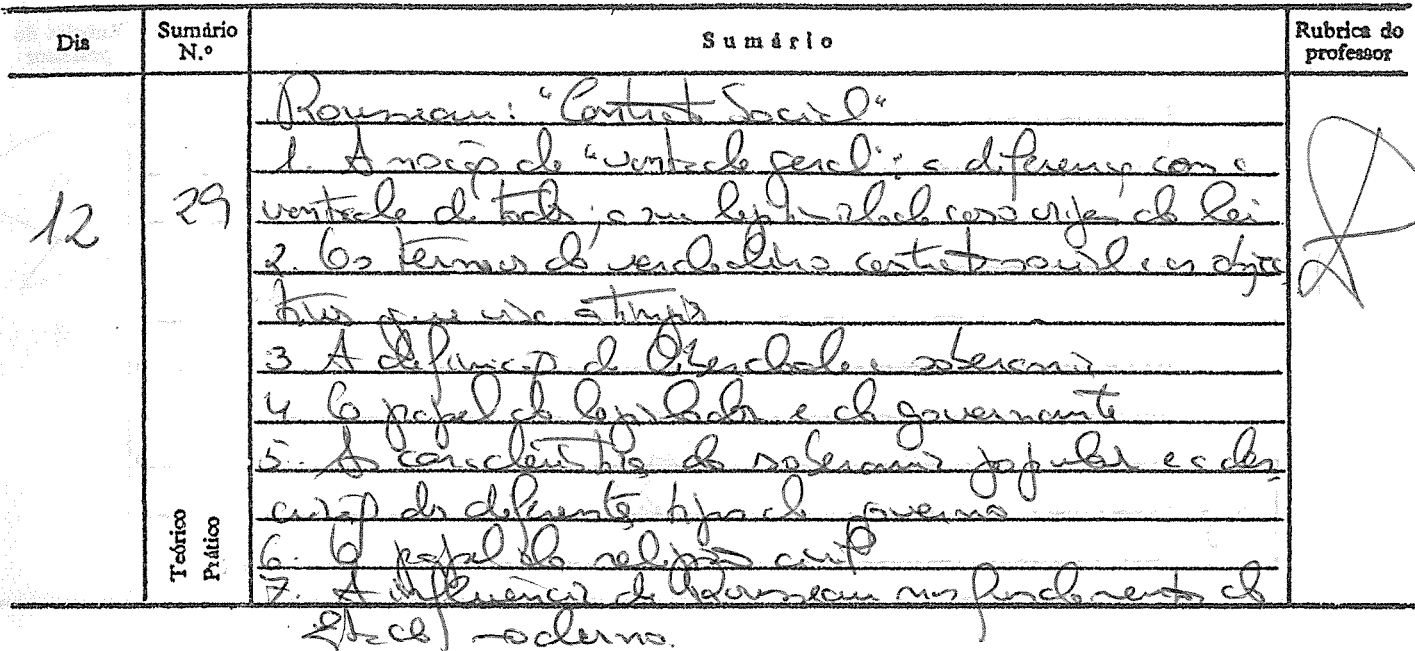 Dia
Sumário N.º
Sumário
Rubrica do professor
12
29
Teórico
Prático
Rousseau: "Contrato Social"
1. A noção de "vontade geral": a diferença com a
vontade de todos; a sua legitimidade como origem da lei
2. Os termos do verdadeiro contrato social e os objec
tivos que visa atingir
3 A definição de liberdade e soberania
4 O papel do legislador e do governante
5. As características da soberania popular e a des
crição dos diferentes tipos de governo
6. O papel da religião civil
7. A influência de Rousseau nos fundamentos do
Estado moderno.